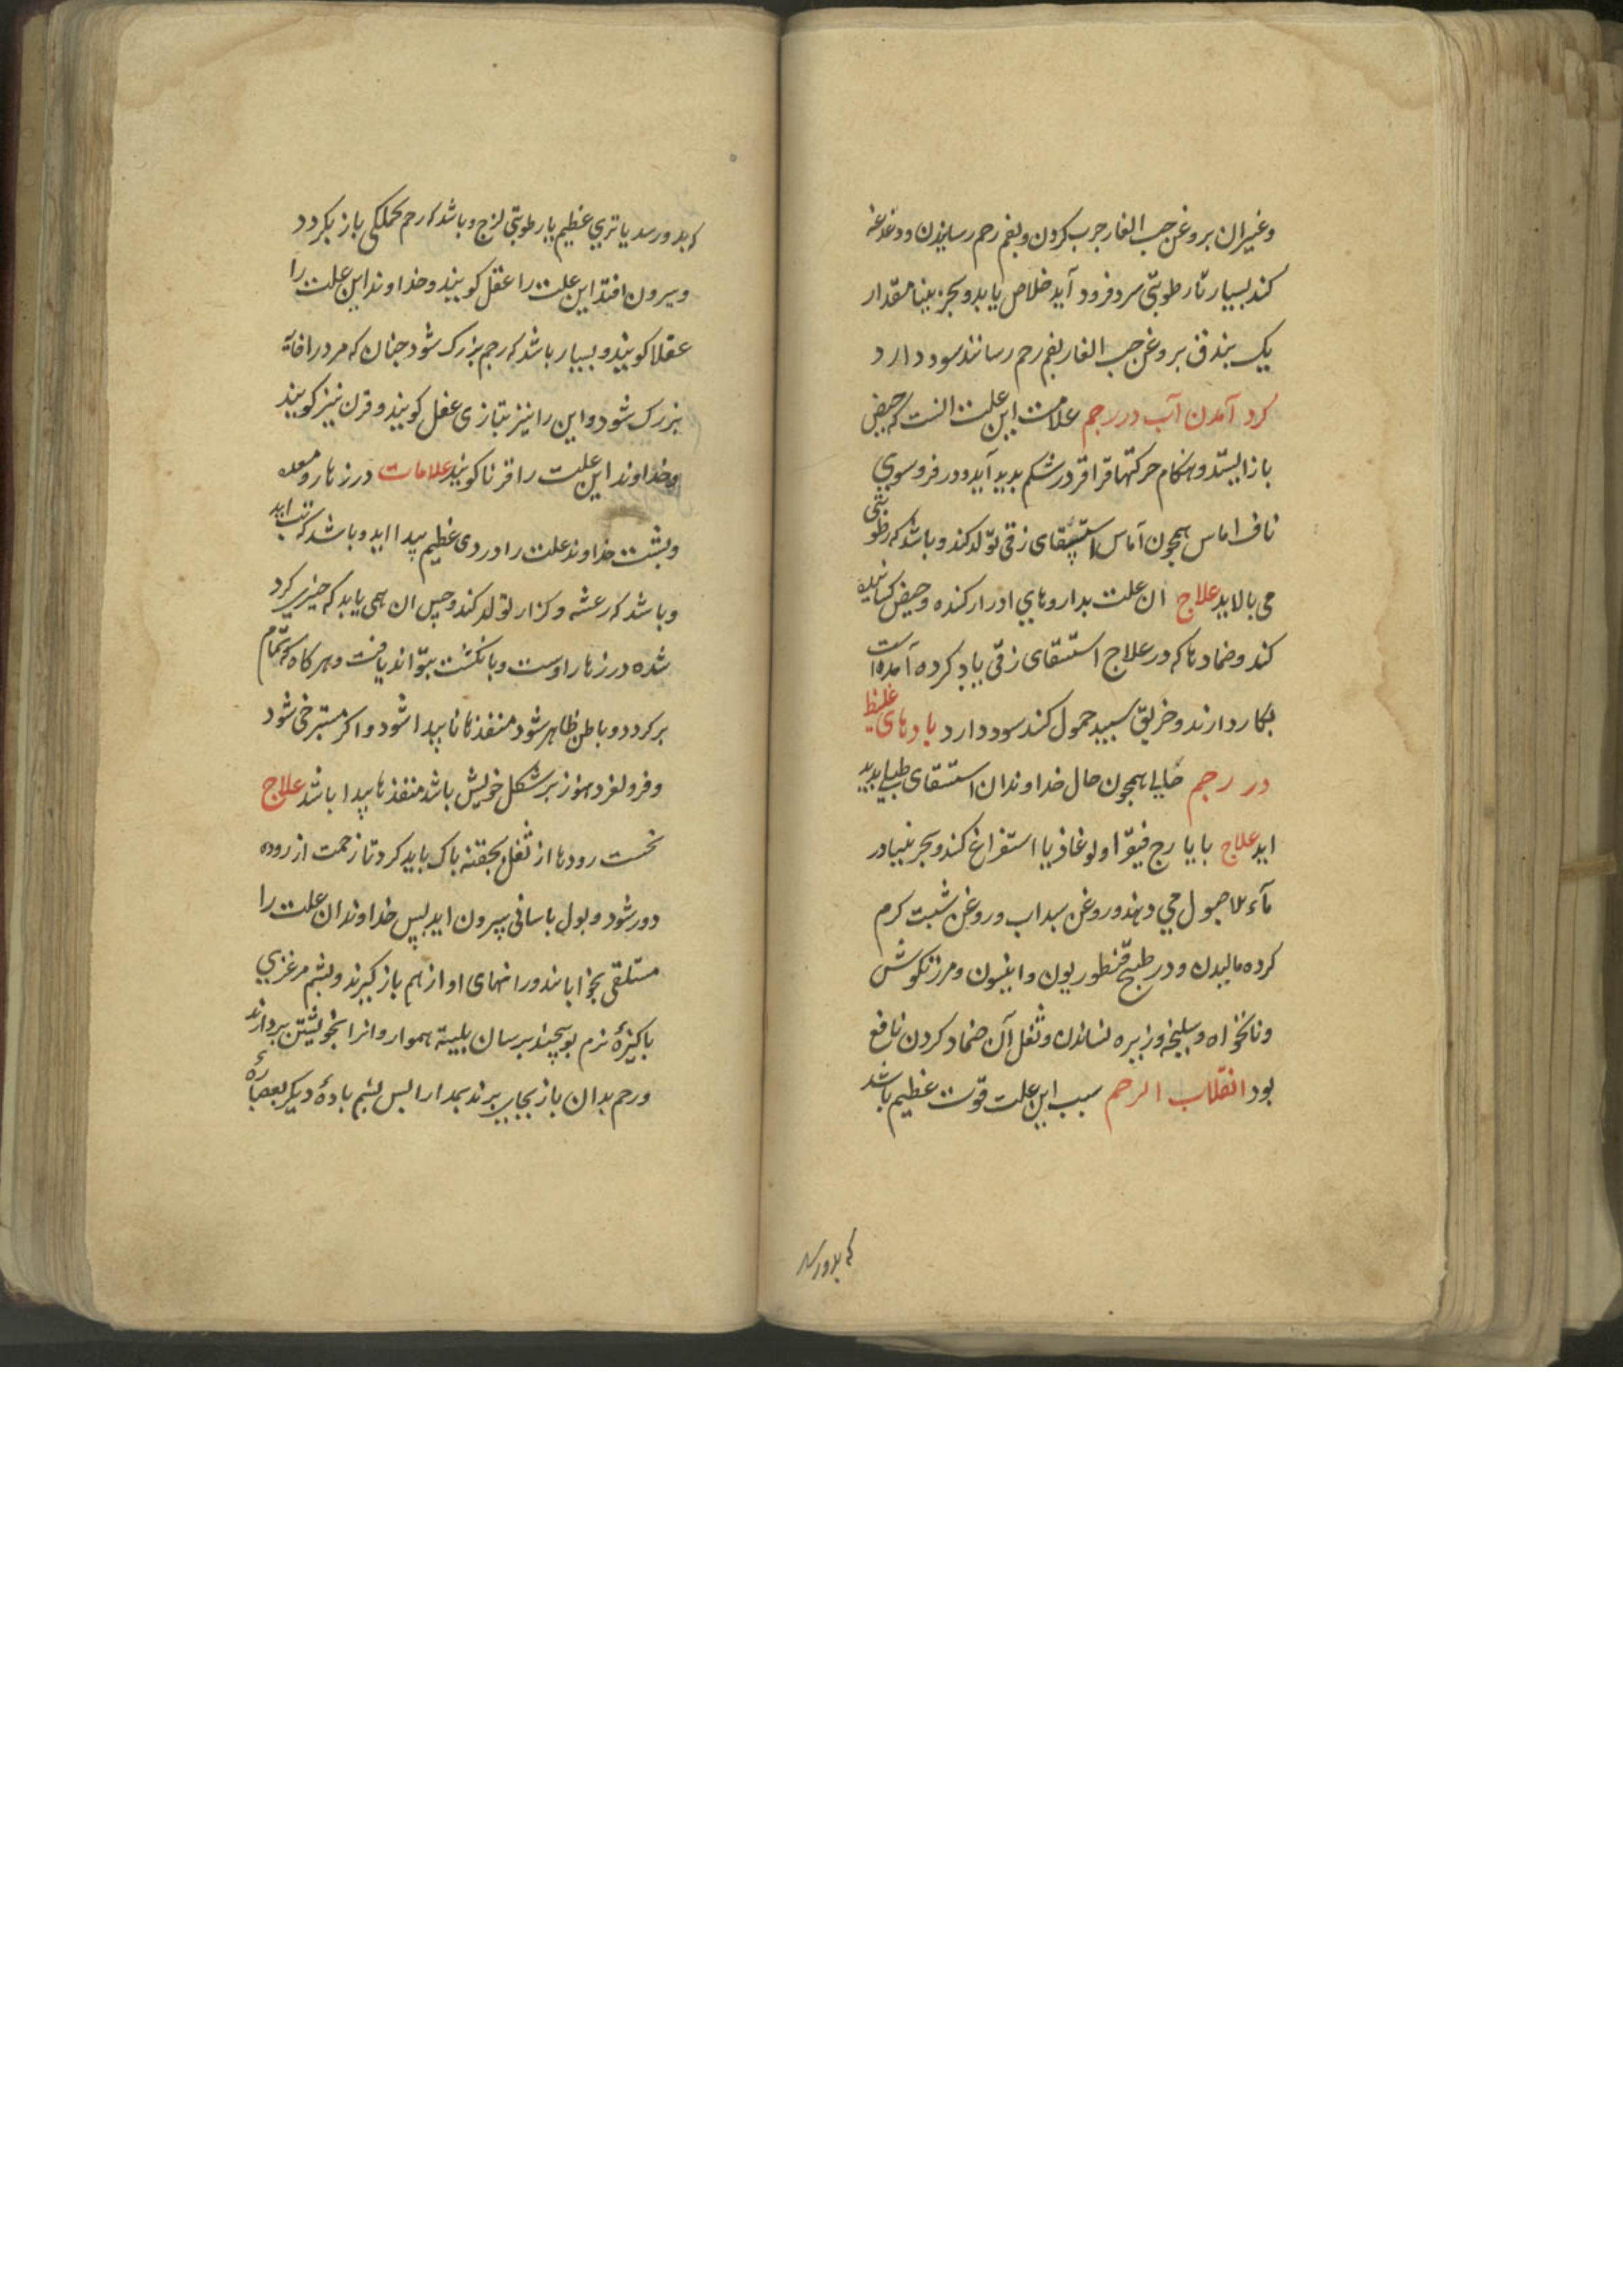 وغیران بروغن حب الغار جرب کردن وبفم رحم رسانیدن ودغدغه
کند بسیار تا رطوبتی سرد فرود آید خلاص یابد وبجربینا مقدار
یک بندق بروغن حب الغار بفم رحم رسانند سود دارد
کرد آمدن آب در رحم علامت این علت انست که حیض
باز ایستد وهنکام حرکتها قراقر در شکم بدید آید ودر فروسوی
ناف اماس همجون آماس استسقای زقی تولد کند وباشد که رطوبتی
می بالاید علاج ان علت بداروهای ادرار کننده وحیض کشاینده
کند وضمادها که در علاج استسقای زقی یاد کرده آمده است
بکار دارند وخربق سبید حمول کند سود دارد بادهای غلیظ
در رحم حالها همجون حال خداوندان استسقای طبلی بدید
اید علاج با یارج فیقرا ولوغاذیا استفراغ کند وبجربنیا در
مآء الاصول می دهند وروغن سداب وروغن شبت کرم
کرده مالیدن ودر طبیخ قنطوریون وانیسون ومرزنکوش
ونانخواه وسلیخه وزیره نشاندن وثفل آن ضماد کردن نافع
بود انقلاب الرحم سبب این علت قوت عظیم باشد
که بدو رسد
که بدو رسد یا تری عظیم یا رطوبتی لزج وباشد که رحم بجملکی باز بکردد
وبیرون افتد این علت را عقل کویند وخداوند این علت را
عقلا کویند وبسیار باشد که رحم بزرک شود جنان که مرد را خایه
بزرک شود واین را نیز بتازی عفل کویند وقرن نیز کویند
وخداوند این علت را قرنا کویند علامات در زهار ومعده
وبشت خداوند علت را دردی عظیم پیدا اید وباشد که تب اید
وباشد که رعشه وکزاز تولد کند وحس ان همی یابد که جیزی کرد
شده در زهار اوست وبانکشت بتواند یافت وهر کاه که تمام
برکردد وباطن ظاهر شود منفذها نا پیدا شود واکر مسترخی شود
وفرو لغزد هنوز بر شکل خویش باشد منفذها پیدا باشد علاج
نخست رودها از ثفل بحقنه باک باید کرد تا زحمت از روده
دور شود وبول باسانی بیرون اید پس خداوندان علت را
مستلقی بخوابانند ورانهای او از هم باز کیرند وبشم مرغزی
باکیزهٔ نرم بوسچند برسان بلیته هموار وانرا بخویشتن بردارند
ورحم بدان باز بجای برند بمدارا پس بشم بادهٔ دیکر بعصارهٔ